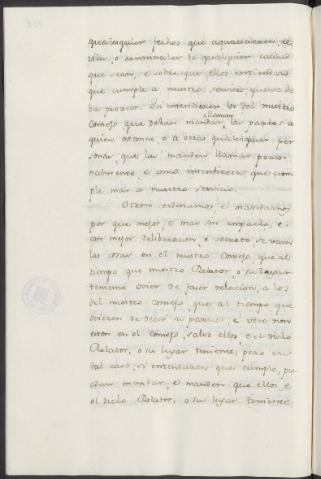 qualesquier fechos que aquaescieren, ce
viles, o criminales de qualquier calidad
que sean, e sobre que ellos entendieren
que cumple a nuestro servicio, que se de
ba proveer. Si entendieren los del nuestro
Consejo que deban mandar llamar, las partes a
quien atanne, o a otras qualesquier per
sonas, que las manden llamar perso
nalmente, e como entendieren que cum
ple mas a nuestro servicio.
Otrosi ordenamos e mandamos
por que mejor, e mas sin empacho, e
con mejor deliberacion, e secreto se vean
las cosas en el nuestro Consejo, que al
tiempo que nuestro Relator, o su lugar
teniente ovier de facer relacion, a los
del nuestro Consejo, que al tiempo que
ovieren de dar su parecer, e voto non
esten en el Consejo, salvo ellos e el dicho
Relator, o su lugar teniente; pero en
tal caso, si entendieren que cumple, pue
dan mandar, e manden que ellos, e
el dicho Relator, o su lugar teniente